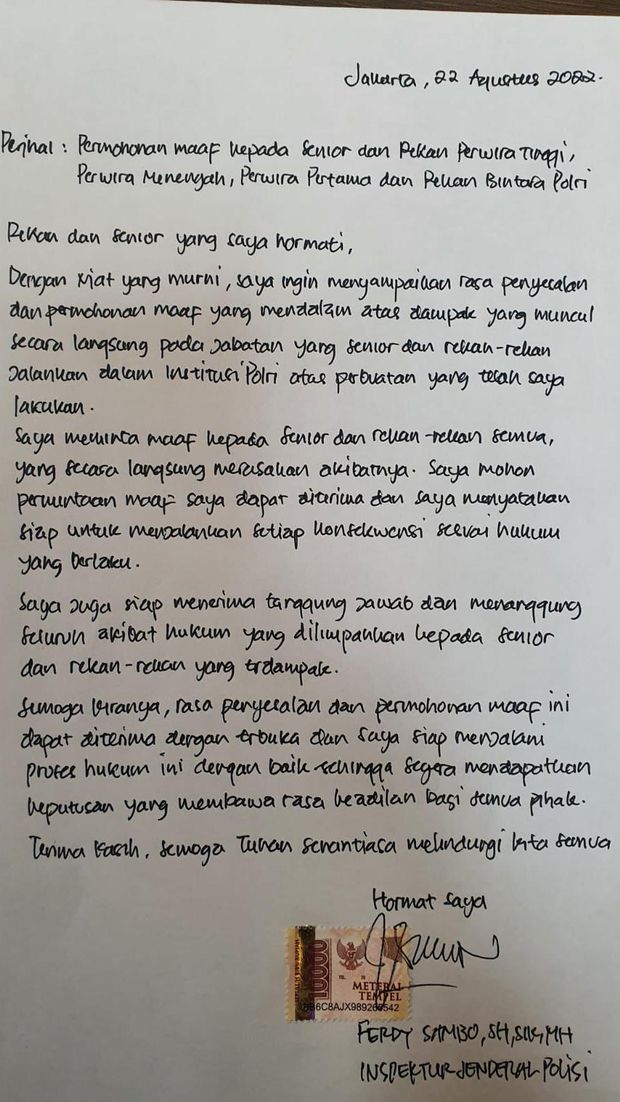 Jakarta, 22 Agustus 2022.
Perihal : Permohonan maaf kepada Senior dan Rekan Perwira Tinggi,
Perwira Menengah, Perwira Pertama dan Rekan Bintara Polri
Rekan dan Senior yang saya hormati,
Dengan Niat yang murni, saya ingin menyampaikan rasa penyesalan
dan permohonan maaf yang mendalam atas dampak yang muncul
secara langsung pada Jabatan yang senior dan rekan-rekan
Jalankan dalam Institusi Polri atas perbuatan yang telah saya
lakukan.
Saya meminta maaf kepada Senior dan rekan-rekan semua,
yang secara langsung merasakan akibatnya. Saya mohon
permintaan maaf saya dapat diterima dan saya menyatakan
siap untuk menjalankan setiap konsekwensi sesuai hukum
yang berlaku.
Saya Juga siap menerima tanggung Jawab dan menanggung
seluruh akibat hukum yang dilimpahkan kepada senior
dan rekan-rekan yang trdampak.
Semoga kiranya, rasa penyesalan dan permohonan maaf ini
dapat diterima dengan terbuka dan Saya siap menjalani
proses hukum ini dengan baik sehingga segera mendapatkan
keputusan yang membawa rasa keadilan bagi semua pihak.
Terima Kasih, semoga Tuhan senantiasa melindungi kita semua
Hormat saya
10000
METERAI
TEMPEL
FERDY SAMBO, SH, SIK, MH
INSPEKTUR JENDERAL POLISI